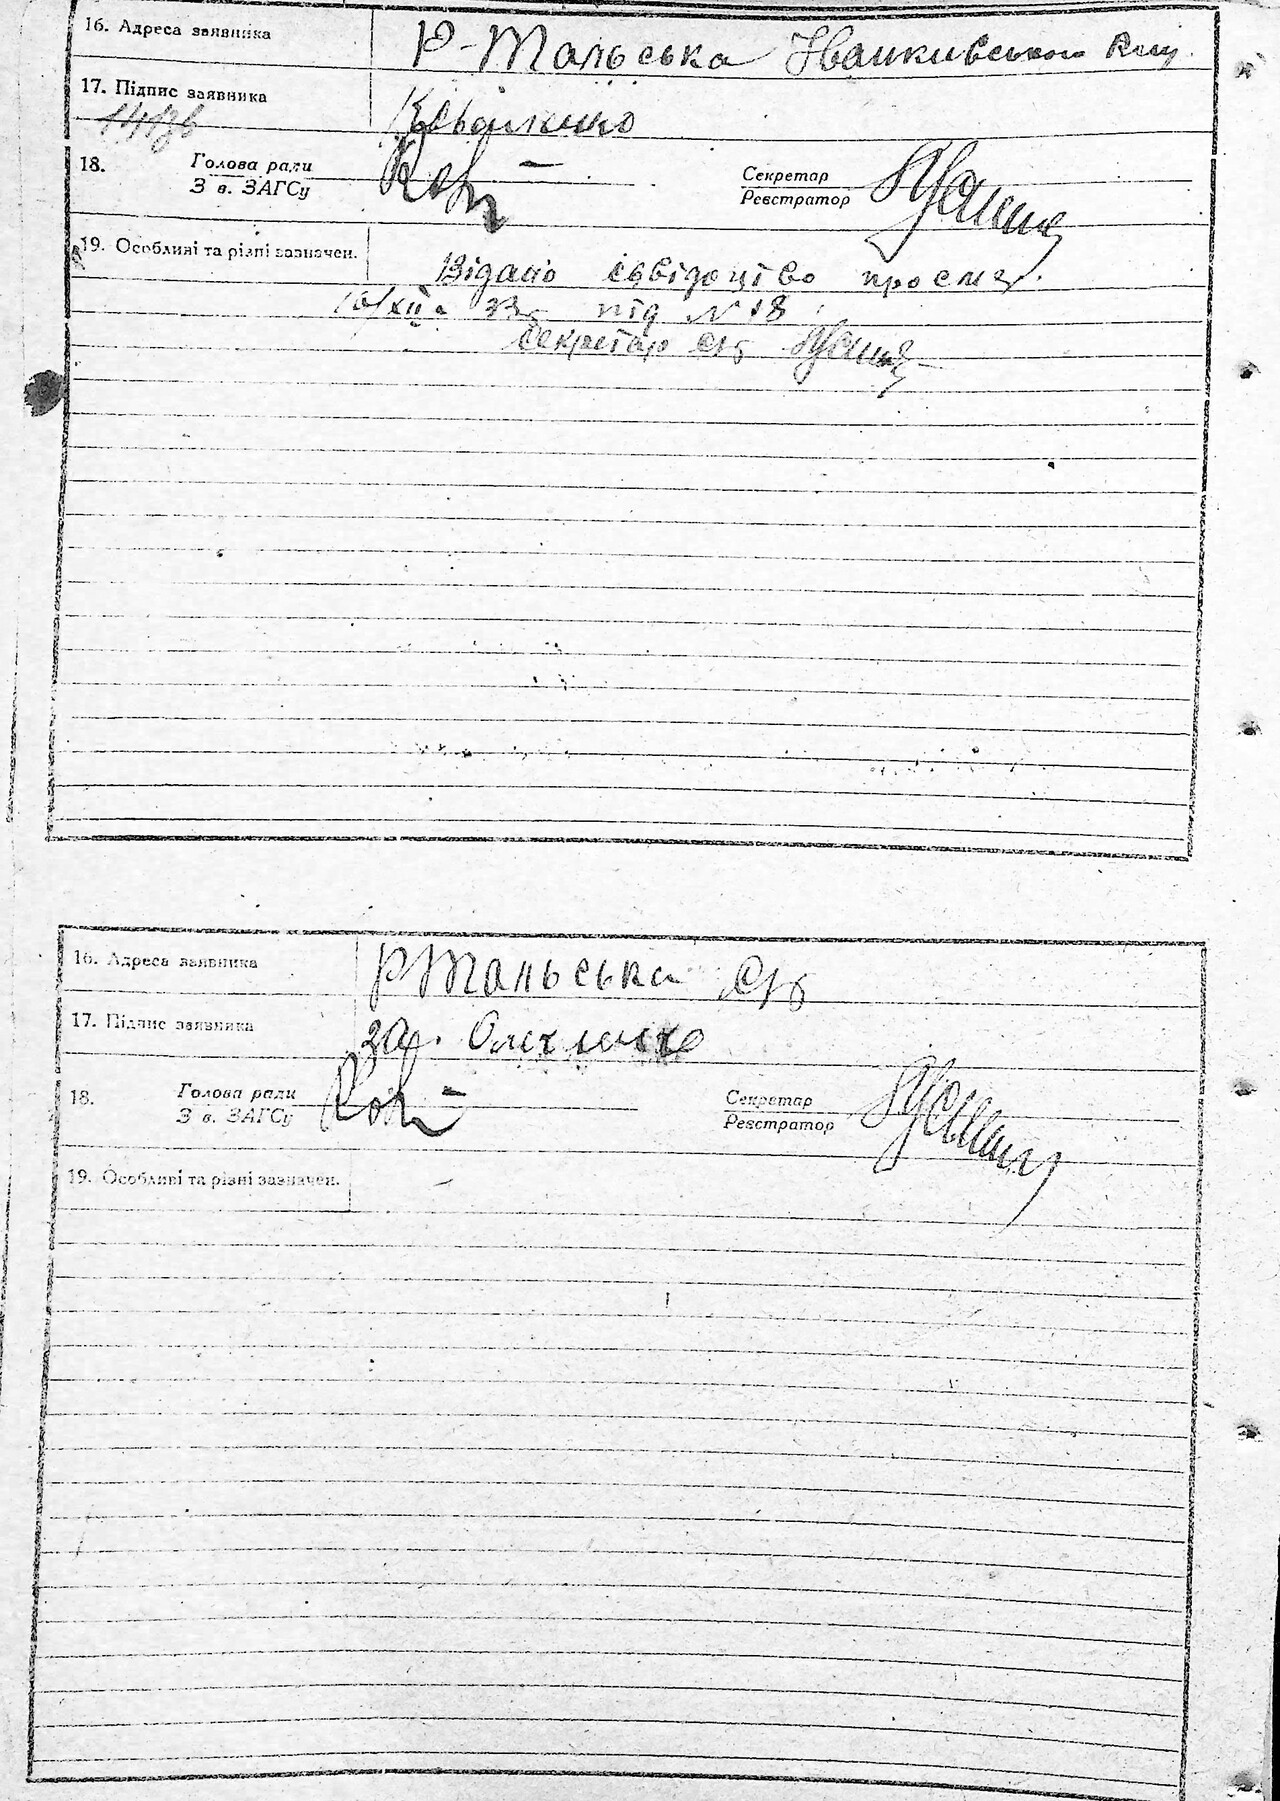 16. Адреса заявника Р-Тальська Іванкивського Rиу
17. Підпис заявника Коваленко
18. Голова ради Секретар
З в. ЗАГСу Реєстратор
19. Особливі та різні зазначен.
Відано сввідоцтво про смер.
10/XII 33г. під N 18
Секретар С/р
16. Адреса заявника РТальська С/р
17. Підпис заявника
18. Голова ради Секретар
З в. ЗАГСу Реєстратор
19. Особливі та різні зазначен.